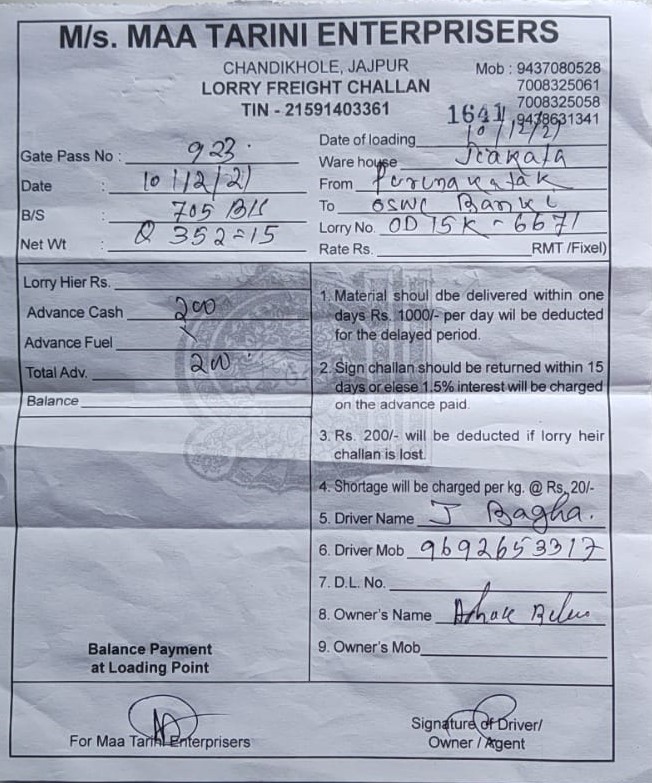 M/s. MAA TARINI ENTERPRISERS
CHANDIKHOLE, JAJPUR
LORRY FREIGHT CHALLAN
TIN - 21591403361
Mob : 9437080528
7008325061
7008325058
9438631341
1641
Gate Pass No : 923.
Date : 10/12/21
B/S : 705 B/S
Net Wt : Q 352=15
Date of loading 10/12/21
Ware house
From Purunakatak
To OSWC Banki
Lorry No. OD 15K-6671
Rate Rs. RMT /Fixel)
Lorry Hier Rs.
Advance Cash 200
Advance Fuel
Total Adv. 200
Balance
Balance Payment
at Loading Point
1. Material shoul dbe delivered within one
days Rs. 1000/- per day wil be deducted
for the delayed period.
2. Sign challan should be returned within 15
days or elese 1.5% interest will be charged
on the advance paid.
3. Rs. 200/- will be deducted if lorry heir
challan is lost.
4. Shortage will be charged per kg. @ Rs, 20/-
5. Driver Name J Bagha.
6. Driver Mob 9692653317
7. D.L. No.
8. Owner's Name
9. Owner's Mob
For Maa Tarini Enterprisers
Signature of Driver/
Owner / Agent